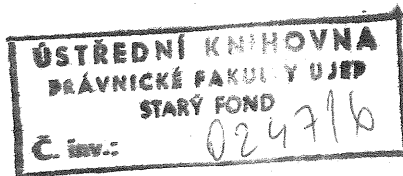 ÚSTŘEDNÍ KNIHOVNA
PRÁVNICKÉ FAKULTY UJEP
STARÝ FOND
Č. inv.: 02471b